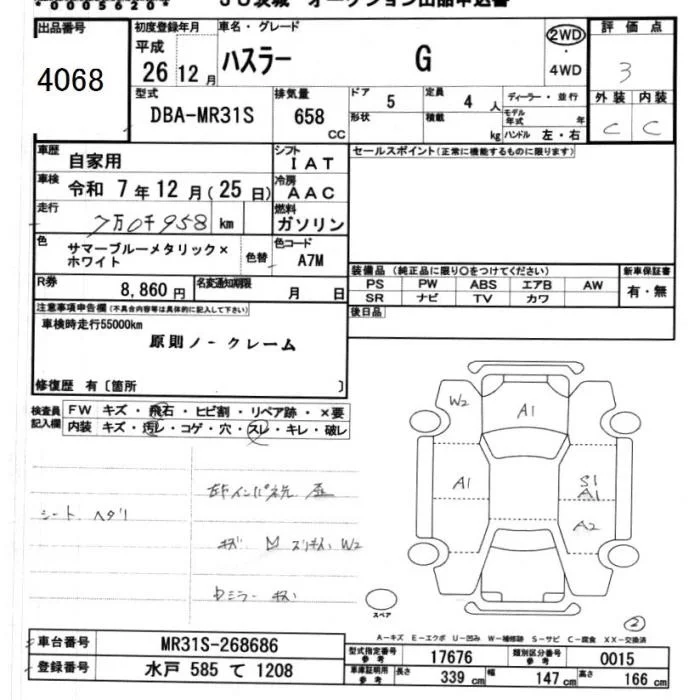 *0005620*
JU茨城 オークション出品申込書
出品番号 初度登録年月 車名・グレード 2WD 評価点
4068 平成 26 12月 ハスラー G ・ 4WD 3
型式 排気量 ドア 5 定員 4 人 ディーラー・並行 外装 内装
DBA-MR31S 658 CC 形状 積載 kg モデル年式 年 ハンドル 左・右 C C
車歴 自家用 シフト IAT セールスポイント(正常に機能するものに限ります)
車検 令和 7年 12月(25日) 冷房 AAC
走行 7万0千958 km 燃料 ガソリン
色 サマーブルーメタリック×ホワイト 色替 色コード A7M
装備品 (純正品に限り○をつけてください) 新車保証書
PS PW ABS エアB AW 有・無
SR ナビ TV カワ
R券 8,860円 名変通知期限 月 日
後日品
注意事項申告欄(不具合内容等は具体的に記入して下さい)
車検時走行55000km
原則ノークレーム
修復歴 有〔箇所 〕
検査員記入欄 FW キズ・飛石・ヒビ割・リペア跡・×要
内装 キズ・汚レ・コゲ・穴・スレ・キレ・破レ
シート ヘタリ
W2 A1
A1 S1 A1
A2
スペア
②
A-キズ E-エクボ U-凹み W-補修跡 S-サビ C-腐食 XX-交換済
車台番号 MR31S-268686
登録番号 水戸 585 て 1208
型式指定番号 参考 17676 類別区分番号 参考 0015
車庫証明用 参考 長さ 339 cm 幅 147 cm 高さ 166 cm